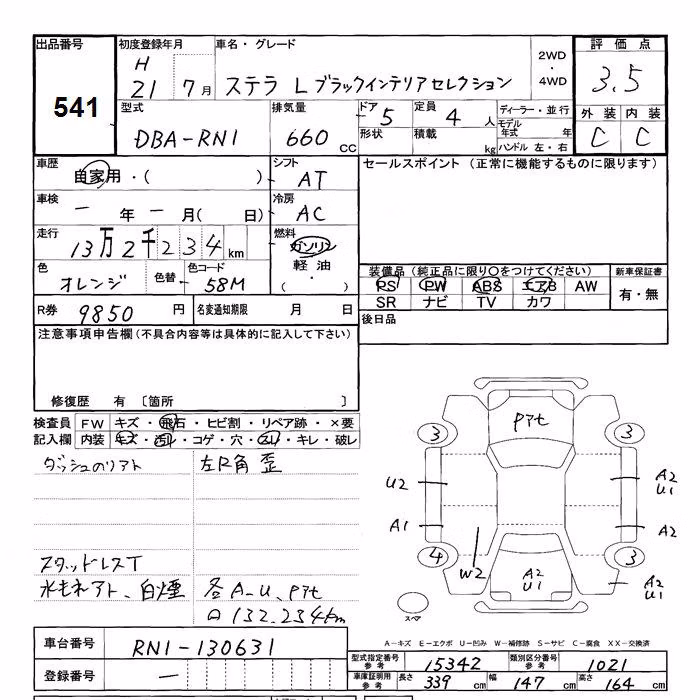 出品番号 初度登録年月 車名・グレード 2WD・4WD 評価点
541
H 21 7月 ステラ L ブラックインテリアセレクション 3.5
型式 排気量 ドア 5 定員 4人 ディーラー・並行 外装 内装
DBA-RN1 660cc 形状 積載 kg モデル年式 年 C C
ハンドル 左・右
車歴 自家用・( ) シフト AT セールスポイント (正常に機能するものに限ります)
車検 一年一月( 日) 冷房 AC
走行 13万2千234km 燃料 ガソリン
軽油・( )
色 オレンジ 色替 色コード 58M
装備品 (純正品に限り○をつけてください) 新車保証書
PS PW ABS エアB AW 有・無
SR ナビ TV カワ
R券 9850円 名変通知期限 月 日 後日品
注意事項申告欄(不具合内容等は具体的に記入して下さい)
修復歴 有 〔箇所 〕
検査員 FW キズ・飛石・ヒビ割・リペア跡・×要
記入欄 内装 キズ・汚レ・コゲ・穴・スレ・キレ・破レ
ダッシュのリアト 左R角 歪
スタッドレスT
水もれアト、白煙 各A-U、Pアt
132.234km
Pアt
3 3
U2 A2 U1
A1 A2
4 3
W2 A2 U1 A2 U1
スペア
A-キズ E-エクボ U-凹み W-補修跡 S-サビ C-腐食 XX-交換済
車台番号 RN1-130631
型式指定番号 参考 15342 類別区分番号 参考 1021
登録番号 一
車庫証明用 参考 長さ 339cm 幅 147cm 高さ 164cm